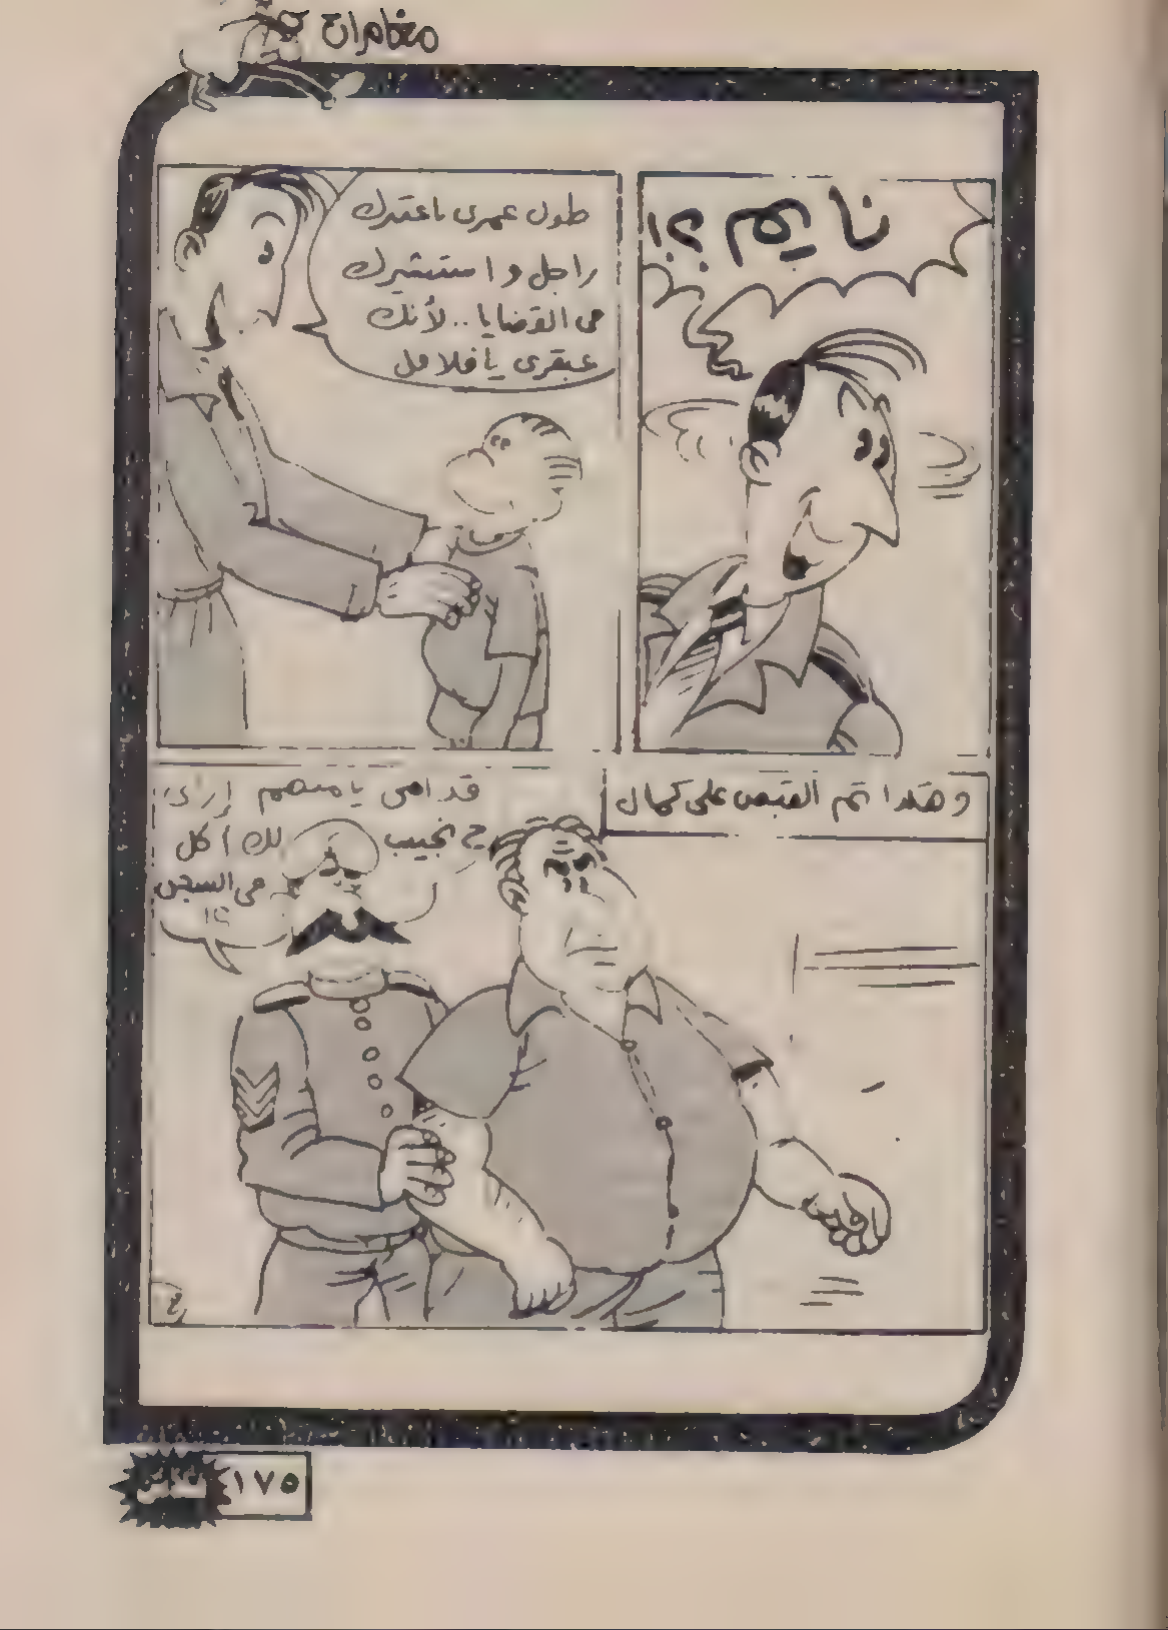 مغامرات
نايم ؟!
طول عمرى باعتبرك
راجل و استشيرك
فى القضايا .. لأنك
عبقرى يا فلافل
وهكذا تم القبض على كمال
قدامى يا متهم إزاى
ح نجيب
لك أكل
فى السجن
؟!
فلاش
١٧٥